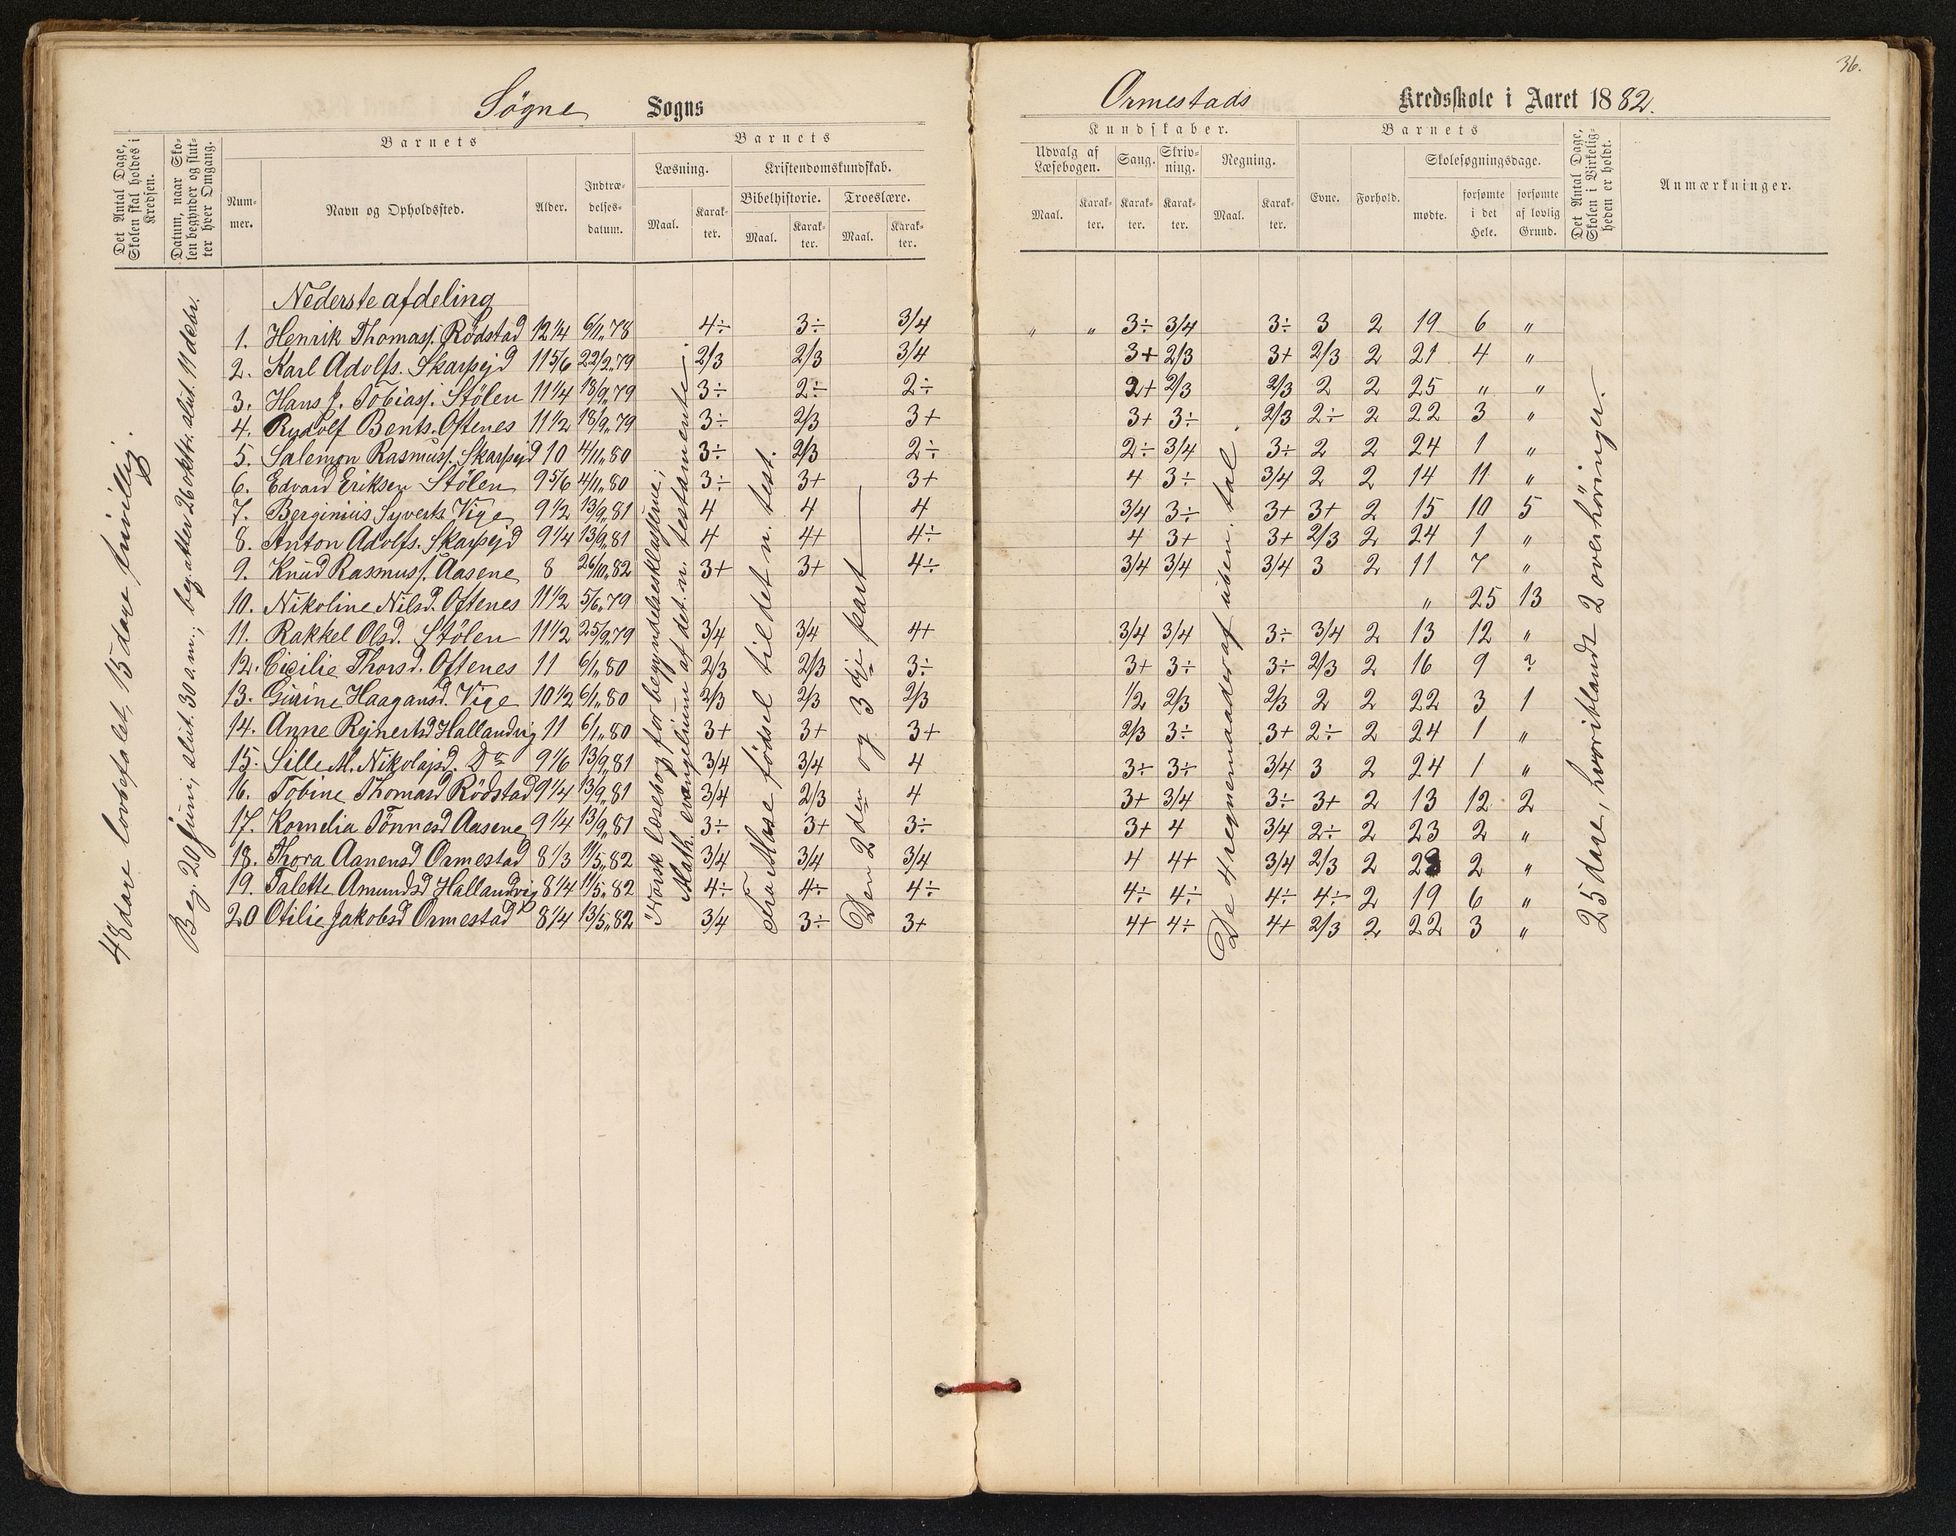 36.
Søgne Sogns
Ormestads Kredsskole i Aaret 1882.
Det Antal Dage, Skolen skal holdes i Kredsen.
Datum, naar Skolen begynder og slutter hver Omgang.
Barnets
Nummer.
Navn og Opholdssted.
Alder.
Indtrædelsesdatum.
Barnets
Læsning.
Kristendomskundskab.
Bibelhistorie.
Troeslære.
Maal. Karakter. Maal. Karakter. Maal. Karakter.
Kundskaber.
Udvalg af Læsebogen.
Sang.
Skrivning.
Regning.
Maal. Karakter. Karakter. Karakter. Maal. Karakter.
Barnets
Evne.
Forhold.
Skolesøgningsdage.
mødte.
forsømte i det Hele.
forsømte af lovlig Grund.
Det Antal Dage, Skolen i Virkeligheden er holdt.
Anmærkninger.
48 dare lovbefalet, 15 dare frivillig.
Beg. 20 juni, slut. 30 a.m.; beg. atter 26 oktbr. slut. 11 debr.
Nederste afdeling
1. Henrik Thomass. Rødstad 12 1/4 6/11 78 4÷ 3÷ 3/4 " " 3÷ 3/4 3÷ 3 2 19 6 "
2. Karl Adolfs. Skarpejd 11 5/6 22/2 79 2/3 2/3 3/4 3+ 2/3 3+ 2/3 2 21 4 "
3. Hans J. Tobiass. Stølen 11 1/4 18/9 79 3÷ 2÷ 2÷ 2+ 2/3 2/3 2 2 25 " "
4. Rudolf Bents. Oftenes 11 1/2 18/9 79 3÷ 2/3 3+ 3+ 3÷ 2/3 2÷ 2 22 3 "
5. Salemon Rasmuss. Skarpejd 10 4/11 80 3÷ 2/3 2÷ 2÷ 3/4 3÷ 2 2 24 1 "
6. Edvard Eriksen Stølen 9 5/6 4/11 80 3÷ 3+ 3+ 4 3÷ 3/4 2 2 14 11 "
7. Berginius Syverts. Vige 9 1/2 13/9 81 4 4 4 3/4 3÷ 3+ 3+ 2 15 10 5
8. Anton Adolfs. Skarpejd 9 1/4 13/9 81 4 4+ 4÷ 4 3+ 3+ 2/3 2 24 1 "
9. Knud Rasmuss. Aasene 8 26/10 82 3+ 3+ 4÷ 3/4 3/4 3/4 3 2 11 7 "
10. Nikoline Nilsd. Oftenes 11 1/2 5/6 79 " 25 13
11. Rakkel Olsd. Stølen 11 1/2 25/9 79 3/4 3/4 4+ 3/4 3/4 3÷ 3/4 2 13 12 "
12. Cicilie Thorsd. Oftenes 11 6/1 80 2/3 2/3 3÷ 3+ 3÷ 3÷ 2/3 2 16 9 ?
13. Gurine Haagansd. Vige 10 1/2 6/1 80 2/3 2/3 2/3 1/2 2/3 2/3 2 2 22 3 1
14. Anne Rejnertsd Hallandvig 11 6/1 80 3+ 3+ 3+ 2/3 3÷ 3+ 2÷ 2 24 1 "
15. Sille M. Nikolajsd. Do 9 1/6 13/9 81 3/4 3/4 4 3÷ 3÷ 3/4 3 2 24 1 "
16. Tobine Thomasd Rødstad 9 1/4 13/9 81 3/4 2/3 4 3+ 3/4 3÷ 3+ 2 13 12 2
17. Kornelia Tønnesd Aasene 9 1/4 13/9 81 3÷ 3+ 3÷ 3+ 4 3/4 2÷ 2 23 2 "
18. Thora Aanensd Ormestad 8 1/3 11/5 82 3/4 3/4 3/4 4 4+ 3/4 2/3 2 23 2 "
19. Talette Amundsd Hallandvig 8 1/4 11/5 82 4÷ 4÷ 4÷ 4÷ 4÷ 4÷ 4÷ 2 19 6 "
20 Otilie Jakobsd Ormestad 8 1/4 13/5 82 3/4 3÷ 3+ 4+ 4÷ 4+ 2/3 2 22 3 "
i Norsk læsebog for begyndelsesklasserne;
Math. evangelium af det. n. testamente.
Fra Mose fødsel til det n. test.
Den 2den og 3dje part
De 4 regnemaader af uben. tal.
25 dare, hvoriblandt 2 overhøringer.